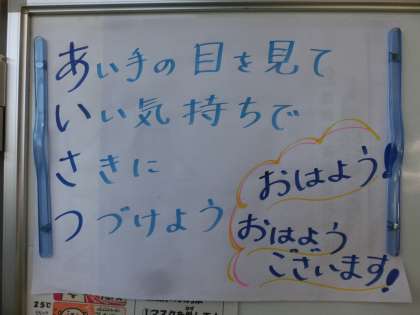 あい手の目を見て
いい気持ちで
さきに
つづけよう
おはよう!
おはよう
ございます!
25℃